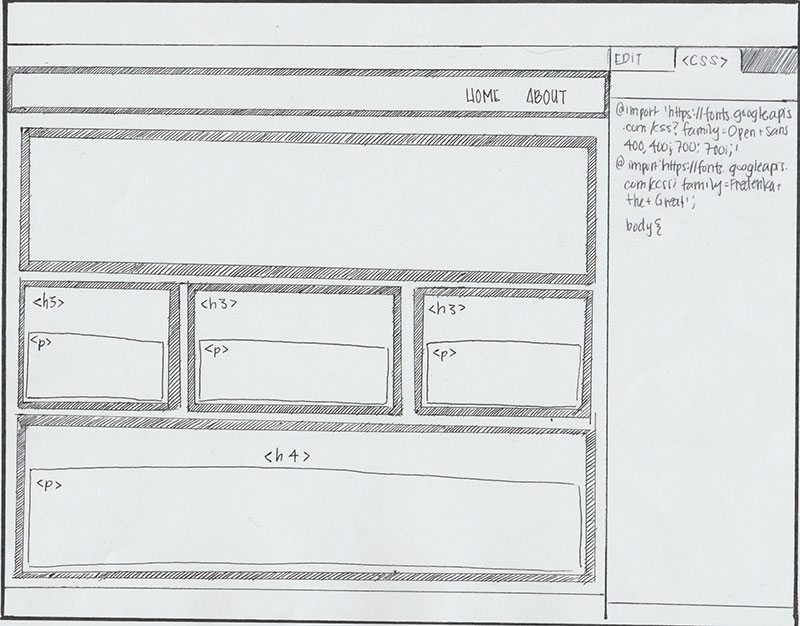 EDIT
<CSS>
HOME ABOUT
@import 'https://fonts.googleapis
.com/css?family=Open+Sans
400,400i,700:700i;'
@import 'https://fonts.googleapis.
com/css?family=Frederika+
the+Great';
body{
<h3>
<p>
<h3>
<p>
<h3>
<p>
<h4>
<p>